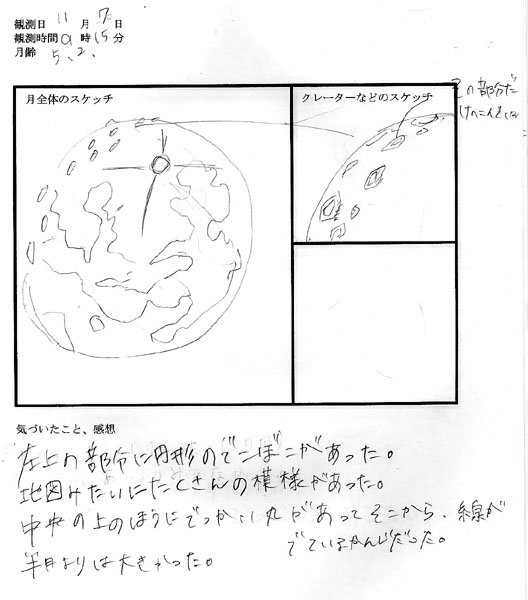 観測日 11月7日
観測時間 9時15分
月齢 5.2.
月全体のスケッチ
クレーターなどのスケッチ
この部分だ
けへこんでいた
気づいたこと、感想
左上の部分に円形のでこぼこがあった。
地図みたいにたくさんの模様があった。
中央の上のほうにでっかい丸があってそこから、線が
でているかんじだった。
半月よりは大きかった。